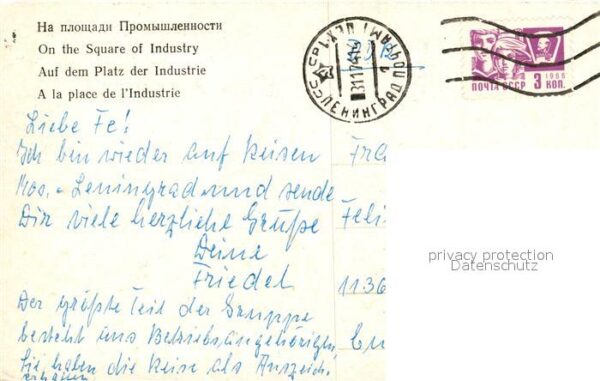 На площади Промышленности
On the Square of Industry
Auf dem Platz der Industrie
A la place de l'Industrie
СССР ЛЕНИНГРАД ПОЧТАМТ
1966
ПОЧТА СССР 3 КОП.
Liebe Fe!
Ich bin wieder auf Reisen
Mos. - Leningrad und sende
Dir viele herzliche Grüße
Deine
Friedel
Der größte Teil der Gruppe
besteht aus Betriebsangehörigen,
Sie haben die Reise als Auszeich.
erhalten
Fra
Feli
1136
privacy protection
Datenschutz